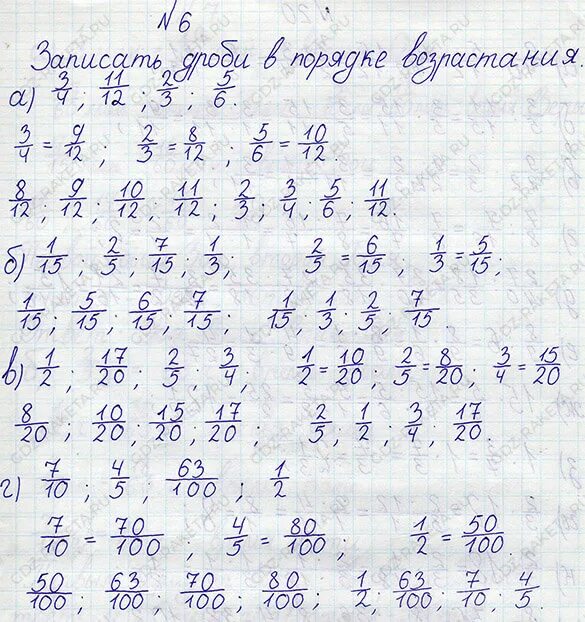 №6
Записать дроби в порядке возрастания.
а) 3/4; 11/12; 2/3; 5/6.
3/4 = 9/12; 2/3 = 8/12; 5/6 = 10/12.
8/12; 9/12; 10/12; 11/12; 2/3; 3/4; 5/6; 11/12.
б) 1/15; 2/5; 7/15; 1/3; 2/5 = 6/15, 1/3 = 5/15;
1/15; 5/15; 6/15; 7/15; 1/15; 1/3; 2/5; 7/15.
в) 1/2; 17/20; 2/5; 3/4; 1/2 = 10/20; 2/5 = 8/20; 3/4 = 15/20
8/20; 10/20; 15/20; 17/20; 2/5; 1/2; 3/4; 17/20.
г) 7/10; 4/5; 63/100; 1/2
7/10 = 70/100; 4/5 = 80/100; 1/2 = 50/100.
50/100; 63/100; 70/100; 80/100; 1/2; 63/100; 7/10; 4/5.